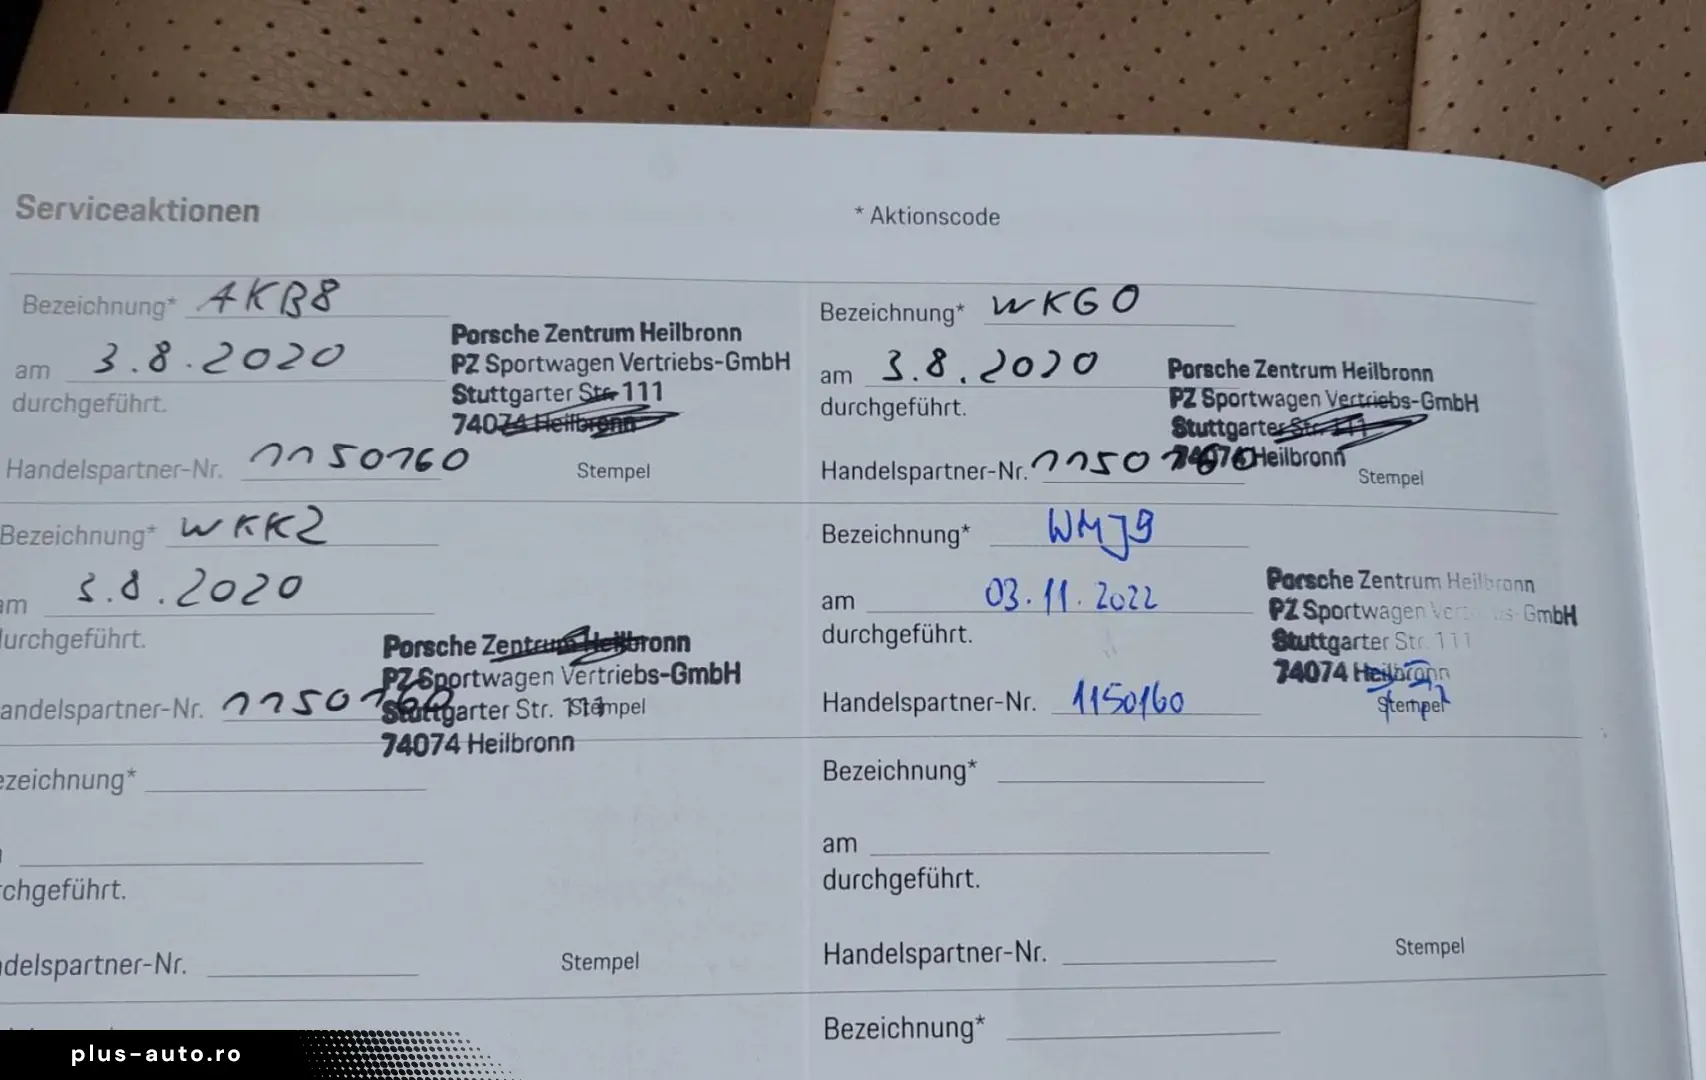 Serviceaktionen
* Aktionscode
Bezeichnung* AKB8
am 3.8.2020
durchgeführt.
Handelspartner-Nr. 1150160
Porsche Zentrum Heilbronn
PZ Sportwagen Vertriebs-GmbH
Stuttgarter Str. 111
74074 Heilbronn
Stempel
Bezeichnung* WKG0
am 3.8.2020
durchgeführt.
Handelspartner-Nr. 1150160
Porsche Zentrum Heilbronn
PZ Sportwagen Vertriebs-GmbH
Stuttgarter Str. 111
74074 Heilbronn
Stempel
Bezeichnung* WKK2
am 3.8.2020
durchgeführt.
andelspartner-Nr. 1150160
Porsche Zentrum Heilbronn
PZ Sportwagen Vertriebs-GmbH
Stuttgarter Str. 111
74074 Heilbronn
Stempel
Bezeichnung* WMJ9
am 03.11.2022
durchgeführt.
Handelspartner-Nr. 1150160
Porsche Zentrum Heilbronn
PZ Sportwagen Vertriebs-GmbH
Stuttgarter Str. 111
74074 Heilbronn
Stempel
ezeichnung*
chgeführt.
delspartner-Nr.
Stempel
Bezeichnung*
am
durchgeführt.
Handelspartner-Nr.
Stempel
Bezeichnung*
plus-auto.ro